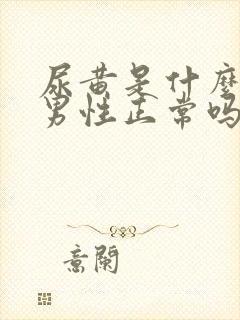 尿黄是什麼
男性正常吗
意闌